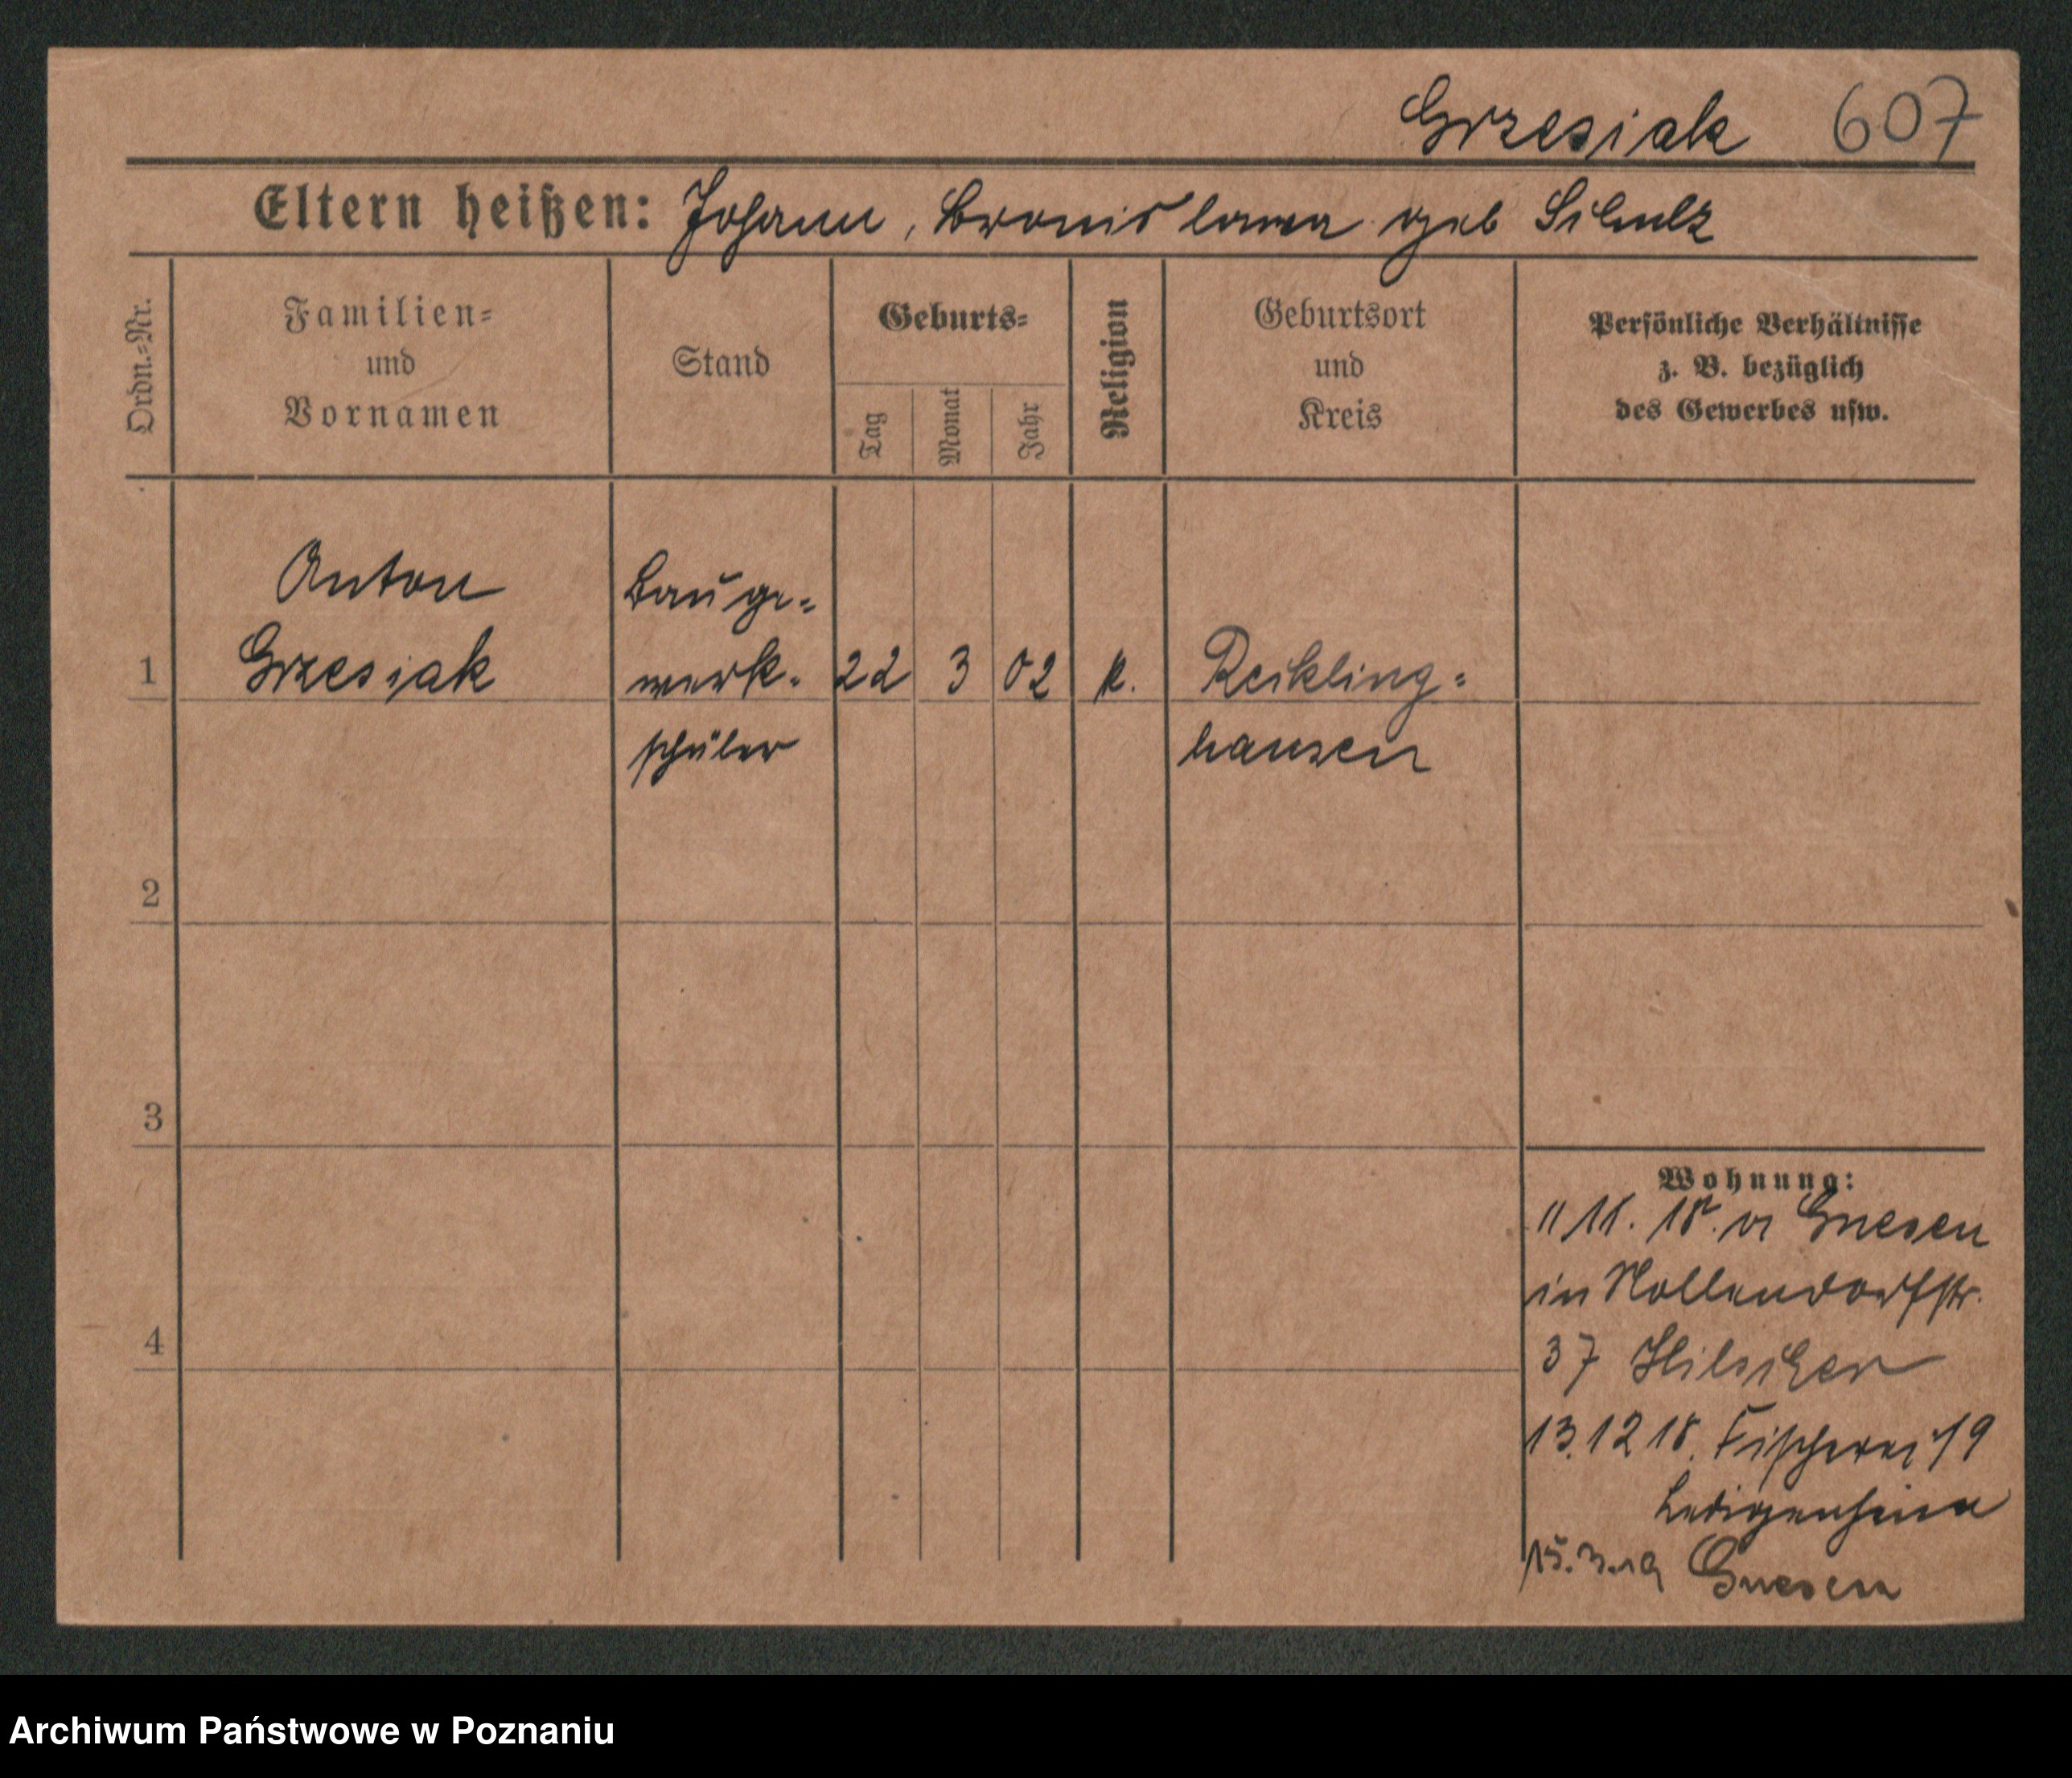 Grzesiak 607
Eltern heißen: Johann, Bronislawa geb Schulz
Ordn.=Nr.
Familien=
und
Vornamen
Stand
Geburts=
Tag
Monat
Jahr
Religion
Geburtsort
und
Kreis
Persönliche Verhältnisse
z. B. bezüglich
des Gewerbes usw.
Anton
Grzesiak
Bauge=
werk=
schüler
1
22 3 02
k.
Reckling=
hausen
2
3
4
Wohnung:
11 11. 18. v Gnesen
in Nollendorfstr.
37
13.12 18. Fischerei 19
Ledigenheim
15.3.19 Gnesen
Archiwum Państwowe w Poznaniu